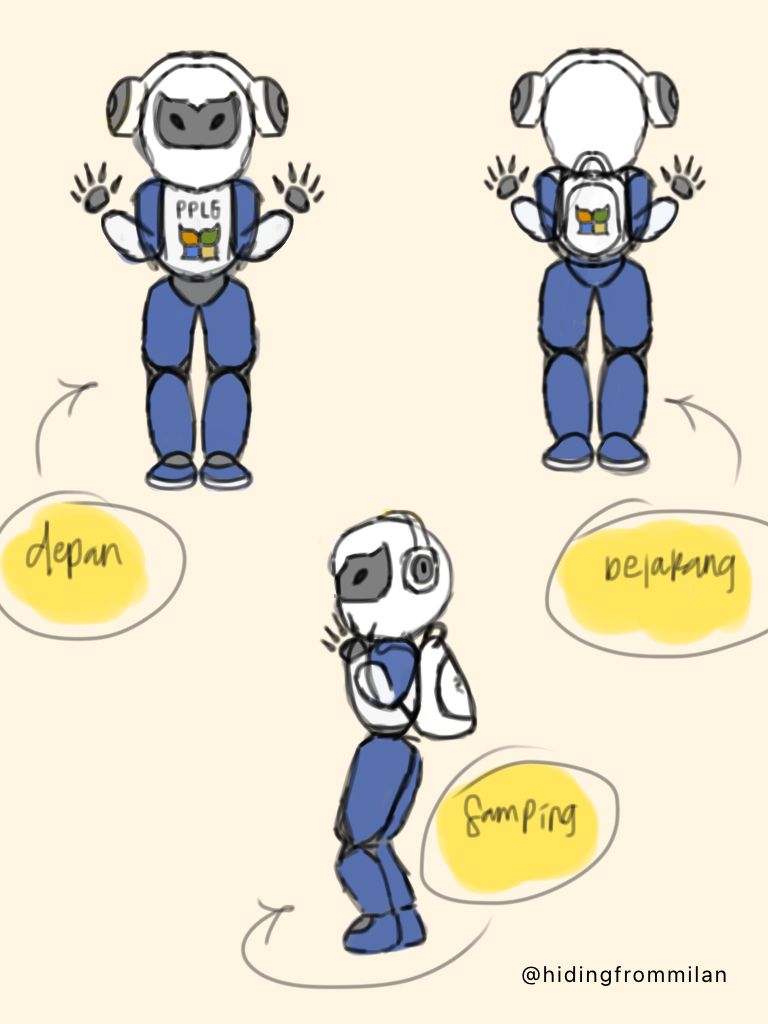 PPLG
depan
belakang
samping
@hidingfrommilan